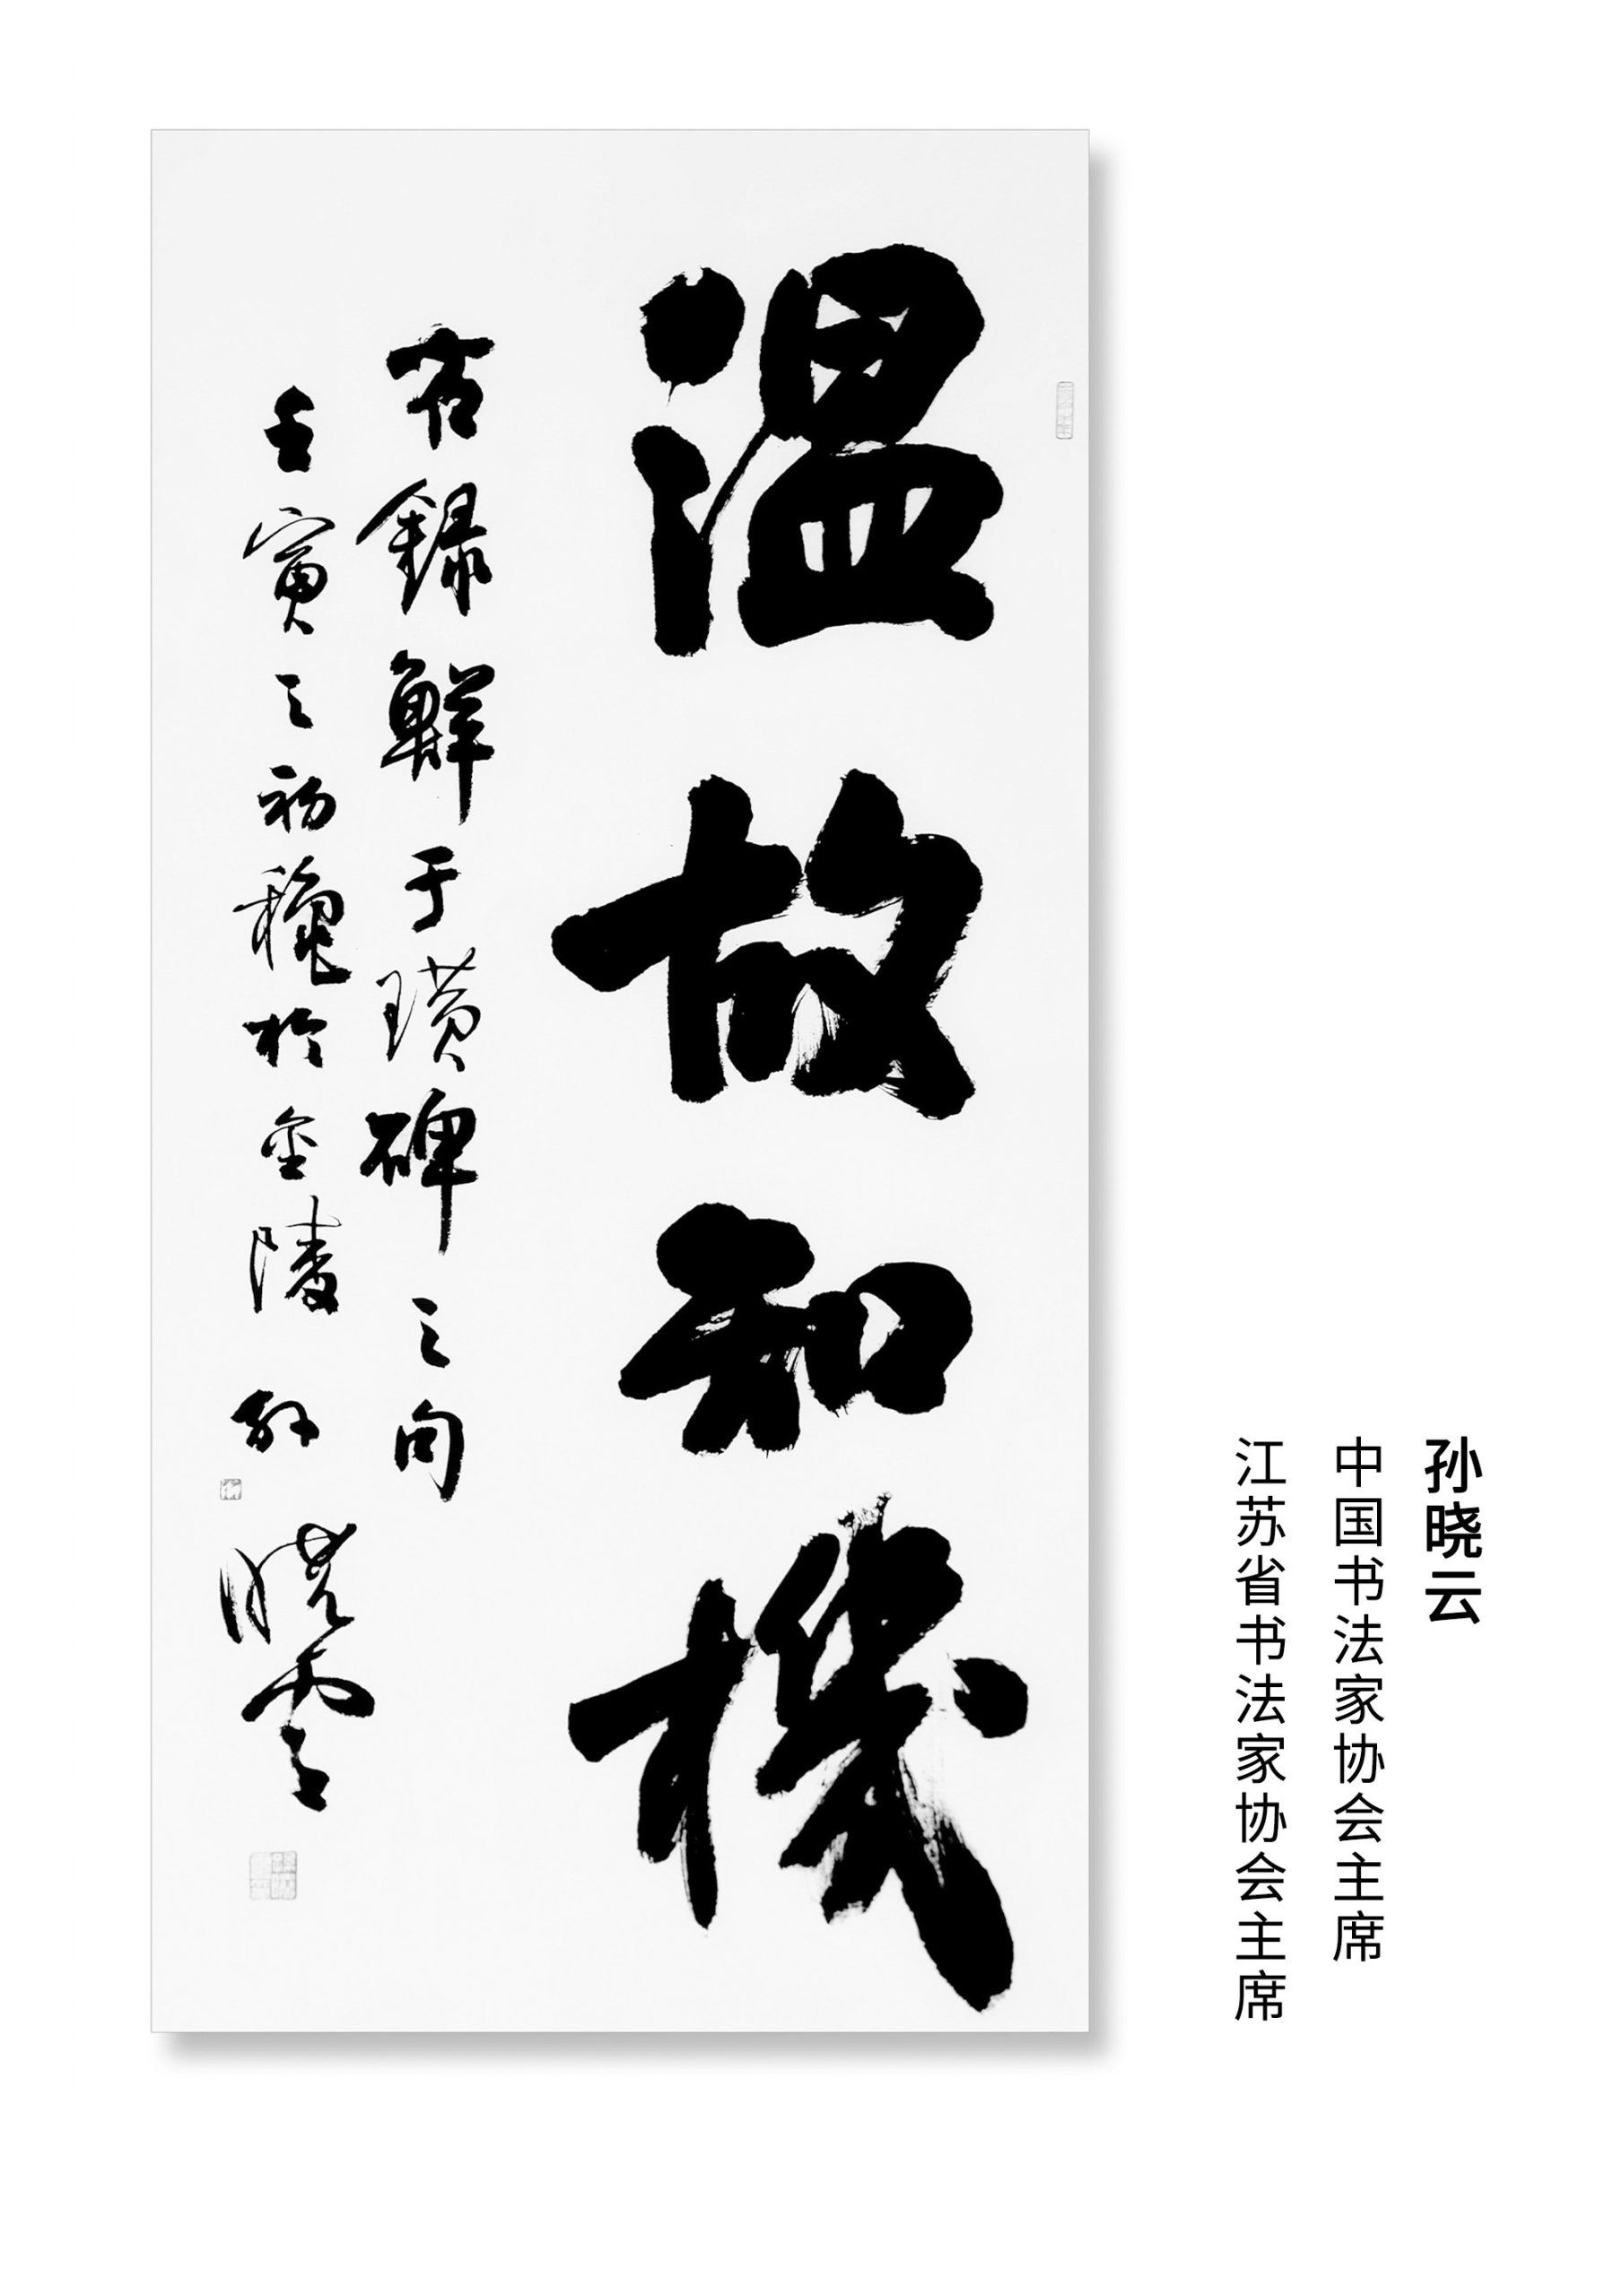 孙晓云
中国书法家协会主席
江苏省书法家协会主席
温故知機
节録鮮于璜碑之句
壬寅之初穐於金陵孫曉雲